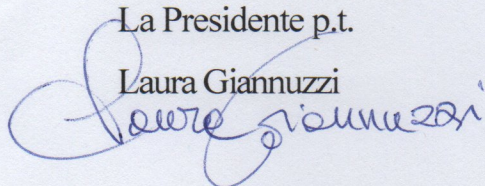 La Presidente p.t.
Laura Giannuzzi
Laura Giannuzzi